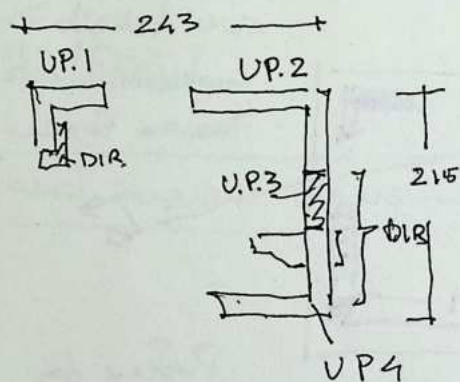 243
UP.1
UP.2
DIR.
U.P.3
215
DIR
UP4